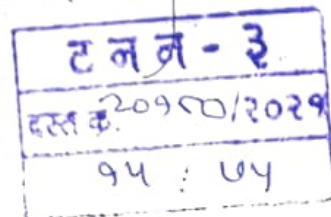 ट न न - ३
दस्त क्र. २०१८०/२०२१
१५ : ७५